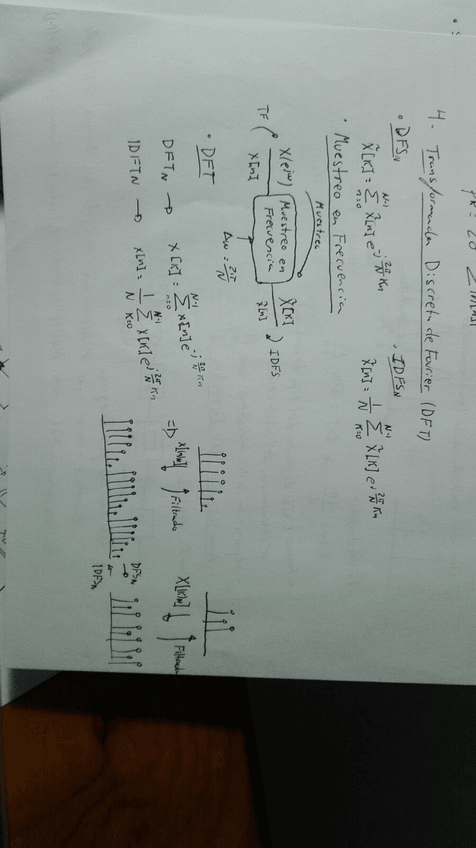 4. Transformada Discreta de Fourier (DFT)
• DFS_N
X̃[K] = Σ_{n=0}^{N-1} x̃[n] e^{-j 2π/N Kn}
• IDFS_N
x̃[n] = 1/N Σ_{K=0}^{N-1} X̃[K] e^{j 2π/N Kn}
• Muestreo en Frecuencia
Muestreo
TF
X(e^{jω})
x[n]
Muestreo en
Frecuencia
Δω = 2π/N
X̃[K]
x̃[n]
IDFS
• DFT
DFT_N → X[K] = Σ_{n=0}^{N-1} x[n] e^{-j 2π/N Kn}
IDFT_N → x[n] = 1/N Σ_{K=0}^{N-1} X[K] e^{j 2π/N Kn}
Filtrado
Filtrado
DFS_N
IDFS_N